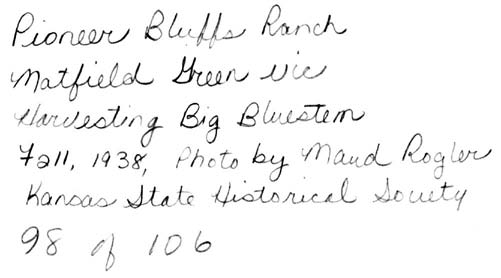 Pioneer Bluffs Ranch
Matfield Green vic
Harvesting Big Bluestem
Fall, 1938, Photo by Maud Rogler
Kansas State Historical Society
98 of 106